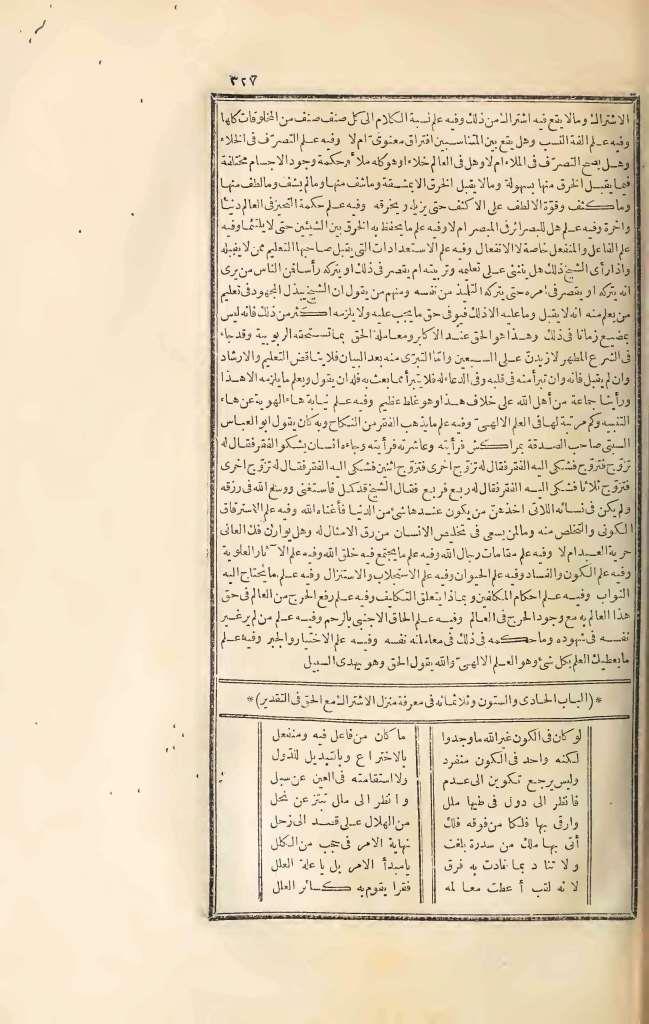 ٣٢٧
الاشتراك ومالا يقع فيه اشتراك من ذلك وفيه علم نسبة الكلام الى كل صنف صنف من المخلوقات كلها
وفيه علم الفة النسب وهل يقع بين المتناسبين افتراق معنوى أم لا وفيه علم التصرف فى الخلاء
وهل يصح التصرف فى الملاء ام لا وهل فى العالم خلاء او هو كله ملأ وحكمة وجود الاجسام مختلفة
فيما يقبل الخرق منها بسهولة ومالا يقبل الخرق الا بمشقة وماشف منها ومالم يشف ومالطف منها
وما كثف وقوة الالطف على الاكثف حتى يزيله ويخرقه وفيه علم حكمة التحيز فى العالم دنيا
وآخرة وفيه علم هل للبصر اثر فى المبصر ام لا وفيه علم ما يحفظ به الخرق بين الشيئين حتى لا يلتئما وفيه
علم الفاعل والمنفعل خاصة لا الانفعال وفيه علم الاستعدادات التى يقبل صاحبها التعليم ممن لا يقبله
واذا رأى الشيخ ذلك هل يتبنى على تعليمه وتربيته ام يقصر فى ذلك او يتركه رأسا فمن الناس من يرى
انه يتركه او يقصر فى امره حتى يتركه التلميذ من نفسه ومنهم من يقول ان الشيخ يبذل المجهود فى تعليم
من يعلم منه انه لا يقبل وما عليه الا ذلك فيوفى حق ما يجب عليه ولا يلزمه اكثر من ذلك فانه ليس
بمضيع زمانا فى ذلك وهذا هو الحق عند الاكابر ومعاملة الحق بما تستحقه الربوبية وقد جاء
فى الشرع المطهر لازيدن على السبعين وانما التبرى منه بعد البيان فلا يناقض التعليم والارشاد
وان لم يقبل فانه وان تبرأ منه فى قلبه وفى الدعاء له فلا يتبرأ مما بعث به فله ان يقول ويعلم ما يلزمه الا هذا
ورأينا جماعة من أهل الله على خلاف هذا وهو غلط عظيم وفيه علم نيابة هاء الهوية عن هاء
التنبيه وكم مرتبة لها فى العلم الالهى وفيه علم ما يذهب الفقر من النكاح وبه كان يقول ابو العباس
السبتى صاحب الصدقة بمراكش فرأيته وعاشرته فرأيته وجاءه انسان يشكو الفقر فقال له
تزوج فتزوج فشكى اليه الفقر فقال له تزوج اخرى فتزوج اثنين فشكى اليه الفقر فقال له تزوج اخرى
فتزوج ثلاثا فشكى اليه الفقر فقال له ربع فربع فقال الشيخ قد كمل فاستغنى ووسع الله فى رزقه
ولم يكن فى نسائه اللاتى اخذهن من يكون عندها شئ من الدنيا فأغناه الله وفيه علم الاسترقاق
الكونى والتخلص منه وما لمن يسعى فى تخليص الانسان من رق الامثال له وهل يوازن فك العانى
حرية العبد ام لا وفيه علم مقامات رجال الله وفيه علم ما يجتمع فيه خلق الله وفيه علم الآثار العلوية
وفيه علم الكون والفساد وفيه علم الحيوان وفيه علم الاستجلاب والاستنزال وفيه علم ما يحتاج اليه
النواب وفيه علم احكام المكلفين وبماذا يتعلق التكليف وفيه علم رفع الحرج من العالم فى حق
هذا العالم به مع وجود الحرج فى العالم وفيه علم الحاق الاجنبى بالرحم وفيه علم من لم ير غير
نفسه فى شهوده وما حكمه فى ذلك فى معاملته نفسه وفيه علم الاختيار والجبر وفيه علم
ما يعطيك العلم بكل شئ وهو العلم الالهى والله يقول الحق وهو يهدى السبيل
* (الباب الحادى والستون وثلاثمائة فى معرفة منزل الاشتراك مع الحق فى التقدير) *
لو كان فى الكون غير الله ما وجدوا ما كان من فاعل فيه ومنفعل
لكنه واحد فى الكون منفرد بالاختراع وبالتبديل للدول
وليس يرجع تكوين الى عدم ولا استقامته فى العين عن سبل
فانظر الى دول فى طيها ملل وانظر الى ملل تبتز عن نحل
وارقى بها فلكا من فوقه فلك من الهلال على قصد الى زحل
أتى بها ملك من سدرة بلغت نهاية الامر فى حجب من الكلل
ولا تناد بما نادت به فرق يا مبدأ الامر بل يا علة العلل
لانه لقب أعطت معالمه فقرا يقوم به كسائر العلل